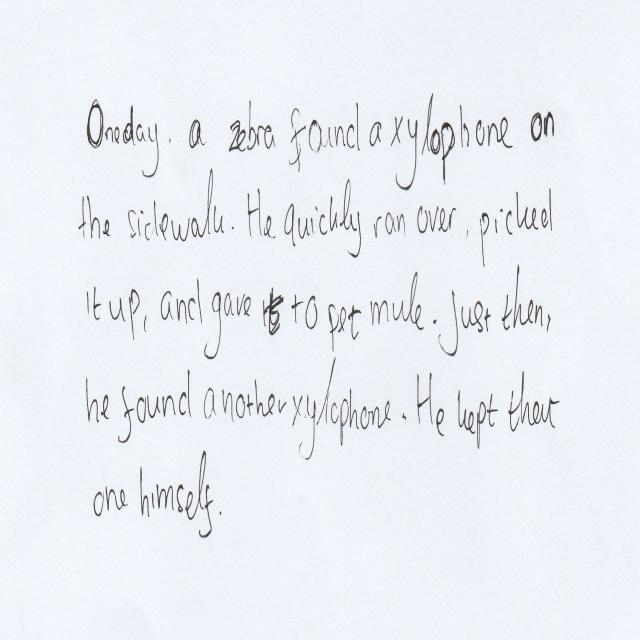 Oneday, a zebra found a xylophone on
the sidewalk. He quickly ran over, picked
it up, and gave it to pet mule. Just then,
he found another xylophone. He kept that
one himself.